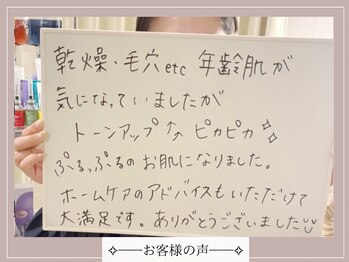 乾燥・毛穴etc 年齢肌が
気になっていましたが
トーンアップ↑↑ ピカピカ✨
ぷるっぷるのお肌になりました。
ホームケアのアドバイスもいただけて
大満足です。ありがとうございました
お客様の声